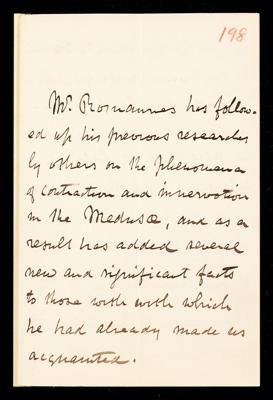 198
Mr. Romannes has follow-
ed up his previous researches
by others on the phenomena
of contraction and innervation
in the Medusæ, and as a
result has added several
new and significant facts
to those with with which
he had already made us
acquainted.